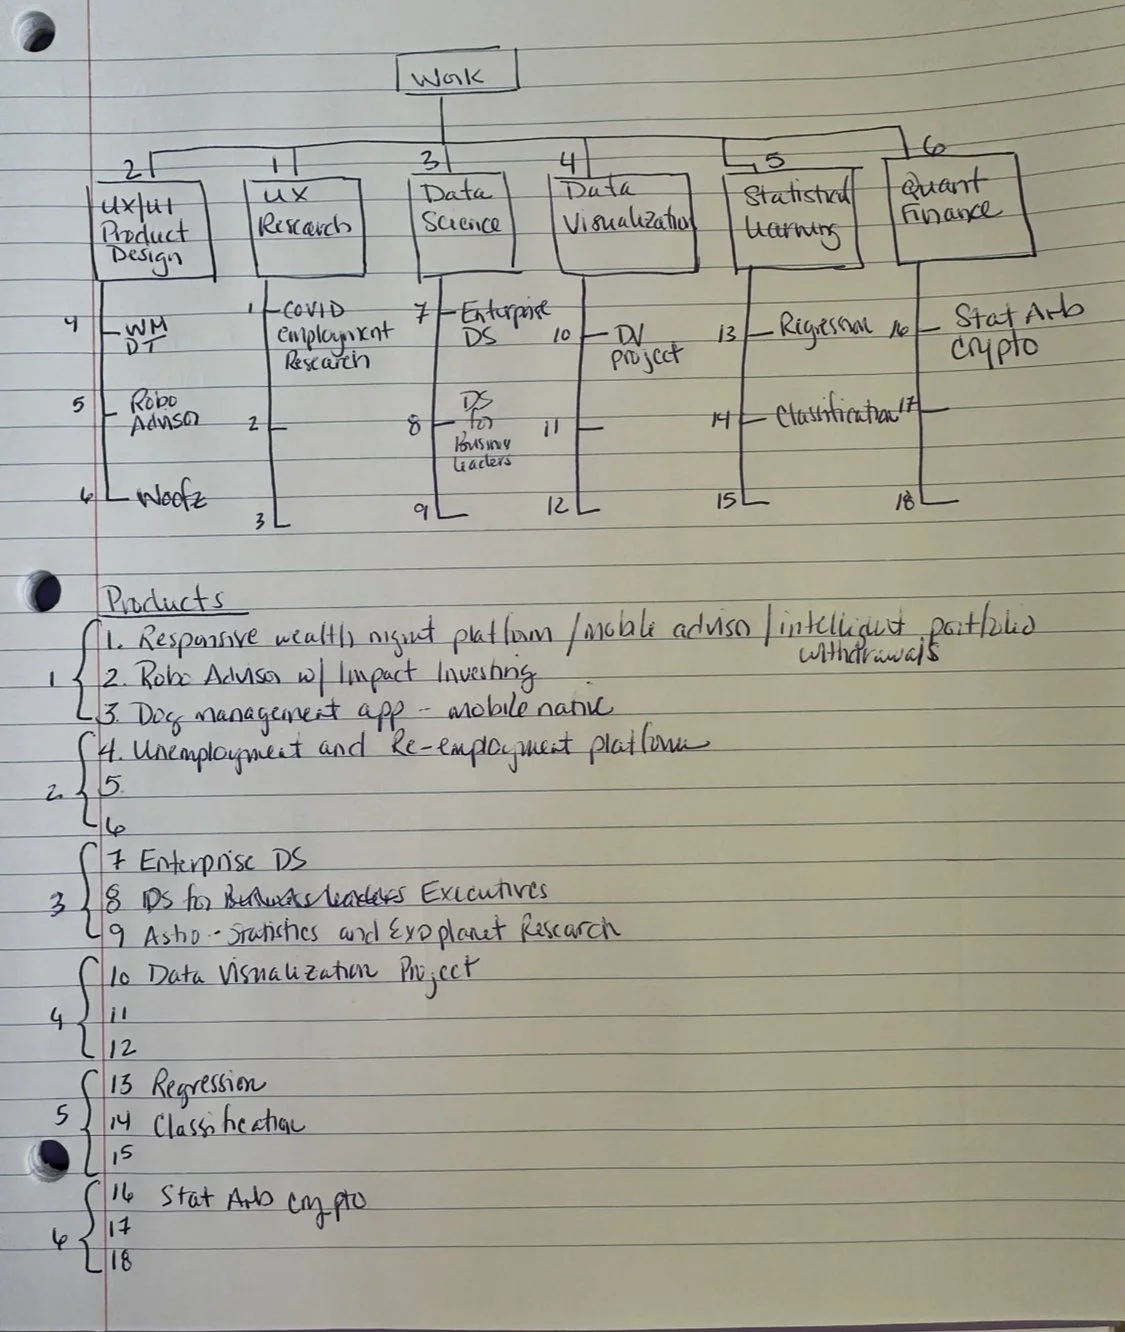 Work
2
1
3
4
5
6
UX/UI
Product
Design
UX
Research
Data
Science
Data
Visualization
Statistical
Learning
Quant
Finance
4 WM
DT
5 Robo
Advisor
6 Woofz
1 COVID
employment
Research
2
3
7 Enterprise
DS
8 DS
for
Business
leaders
9
10 DV
project
11
12
13 Regression
14 Classification
15
16 Stat Arb
crypto
17
18
Products
1
1. Responsive wealth mgmt platform / mobile advisor / intelligent portfolio
withdrawals
2. Robo Advisor w/ Impact Investing
3. Dog management app - mobile native
2.
4. Unemployment and Re-employment platform
5.
6
3
7 Enterprise DS
8 DS for Executives
9 Astro-Statistics and Exoplanet Research
4
10 Data Visualization Project
11
12
5
13 Regression
14 Classification
15
6
16 Stat Arb crypto
17
18